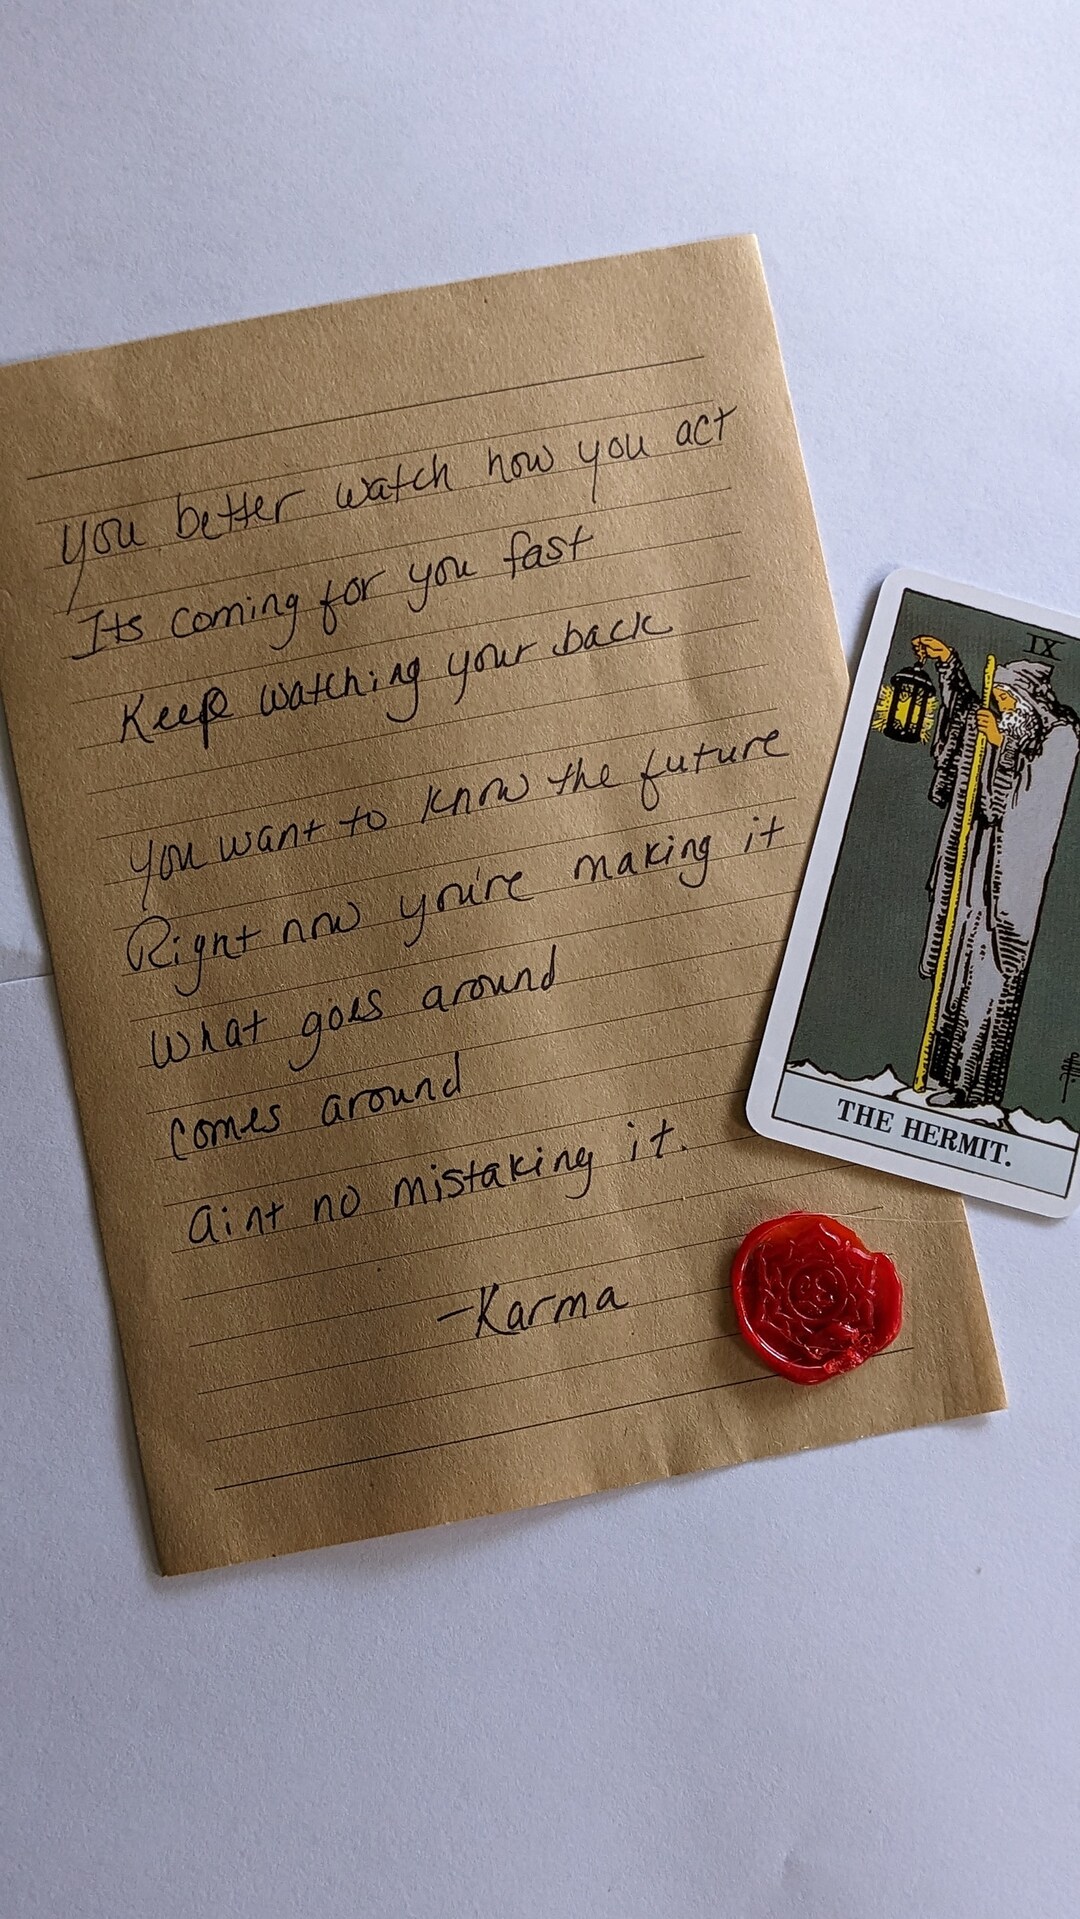 You better watch how you act
Its coming for you fast
Keep watching your back
You want to know the future
Right now you're making it
What goes around
comes around
aint no mistaking it.
-Karma
IX
THE HERMIT.